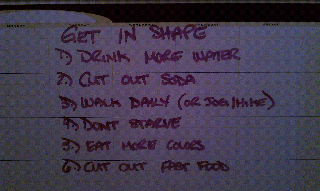 GET IN SHAPE
1.) DRINK MORE WATER
2.) CUT OUT SODA
3.) WALK DAILY (OR JOG/HIKE)
4.) DONT STARVE
5.) EAT MORE COLORS
6.) CUT OUT FAST FOOD